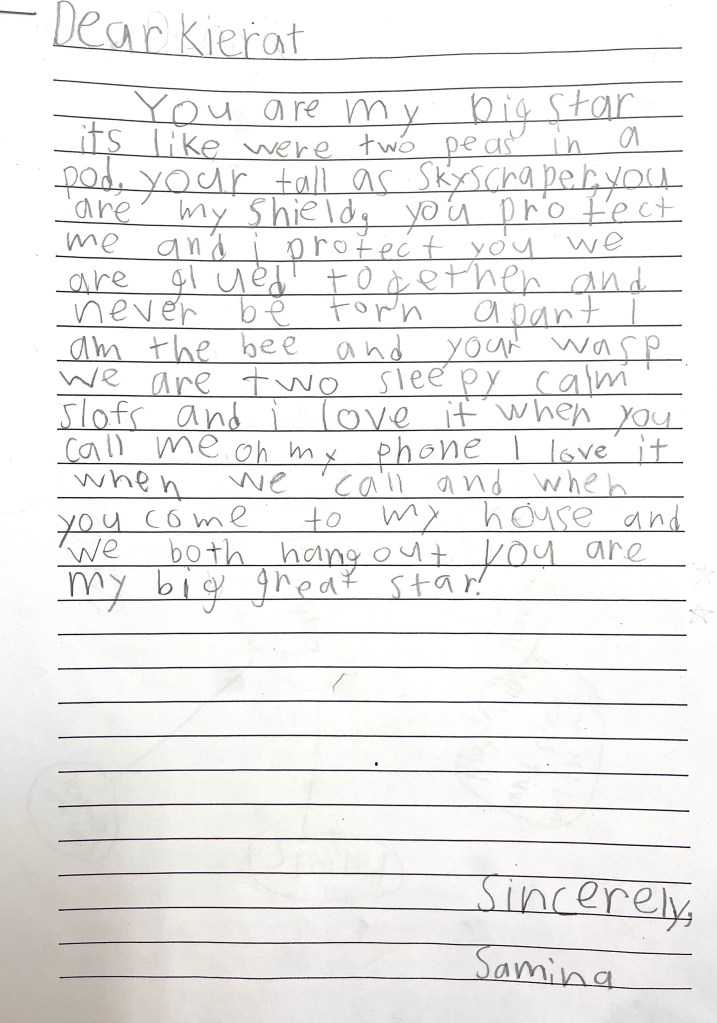 Dear Kierat
You are my big star
its like were two peas in a
pod, your tall as skyscraper, you
are my shield, you protect
me and i protect you we
are glued together and
never be torn apart I
am the bee and your wasp
we are two sleepy calm
slofs and i love it when you
call me on my phone I love it
when we call and when
you come to my house and
we both hang out you are
my big great star!
Sincerely,
Samina